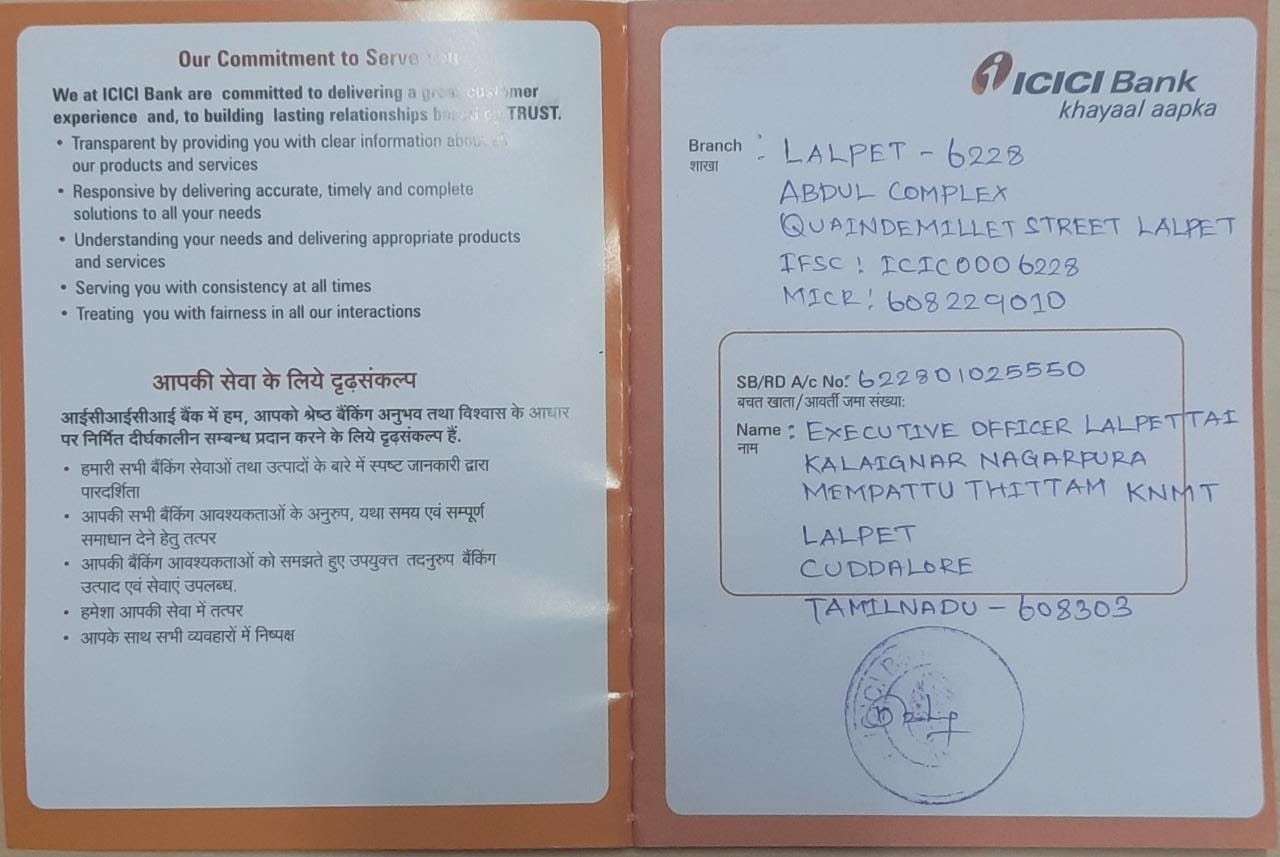 Our Commitment to Serve You
We at ICICI Bank are committed to delivering a great customer
experience and, to building lasting relationships based on TRUST.
• Transparent by providing you with clear information about all
our products and services
• Responsive by delivering accurate, timely and complete
solutions to all your needs
• Understanding your needs and delivering appropriate products
and services
• Serving you with consistency at all times
• Treating you with fairness in all our interactions
आपकी सेवा के लिये दृढ़संकल्प
आईसीआईसीआई बैंक में हम, आपको श्रेष्ठ बैंकिंग अनुभव तथा विश्वास के आधार
पर निर्मित दीर्घकालीन सम्बन्ध प्रदान करने के लिये दृढ़संकल्प हैं.
• हमारी सभी बैंकिंग सेवाओं तथा उत्पादों के बारे में स्पष्ट जानकारी द्वारा
पारदर्शिता
• आपकी सभी बैंकिंग आवश्यकताओं के अनुरुप, यथा समय एवं सम्पूर्ण
समाधान देने हेतु तत्पर
• आपकी बैंकिंग आवश्यकताओं को समझते हुए उपयुक्त तदनुरुप बैंकिंग
उत्पाद एवं सेवाएं उपलब्ध.
• हमेशा आपकी सेवा में तत्पर
• आपके साथ सभी व्यवहारों में निष्पक्ष
ICICI Bank
khayaal aapka
Branch : LALPET - 6228
शाखा
ABDUL COMPLEX
QUAINDEMILLET STREET LALPET
IFSC : ICIC0006228
MICR : 608229010
SB/RD A/c No: 622801025550
बचत खाता/आवर्ती जमा संख्या:
Name : EXECUTIVE OFFICER LALPETTAI
नाम
KALAIGNAR NAGARPURA
MEMPATTU THITTAM KNMT
LALPET
CUDDALORE
TAMILNADU - 608303